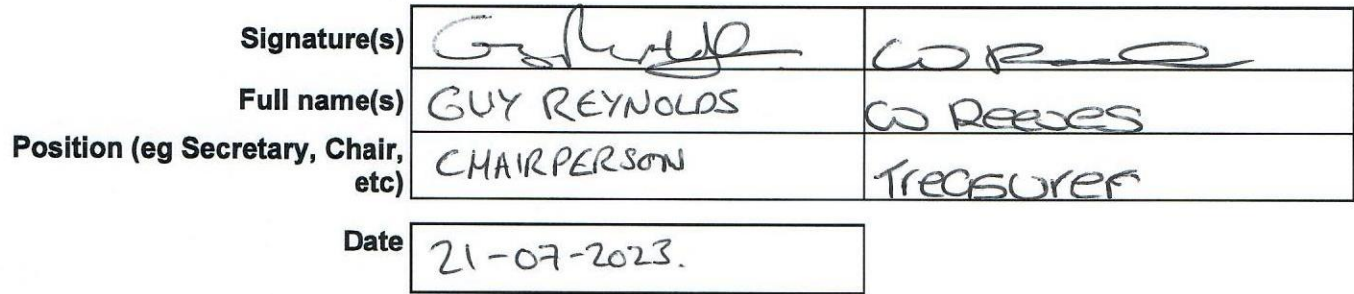 Signature(s)
Full name(s) GUY REYNOLDS CW Reeves
Position (eg Secretary, Chair, etc) CHAIRPERSON Treasurer
Date 21-07-2023.